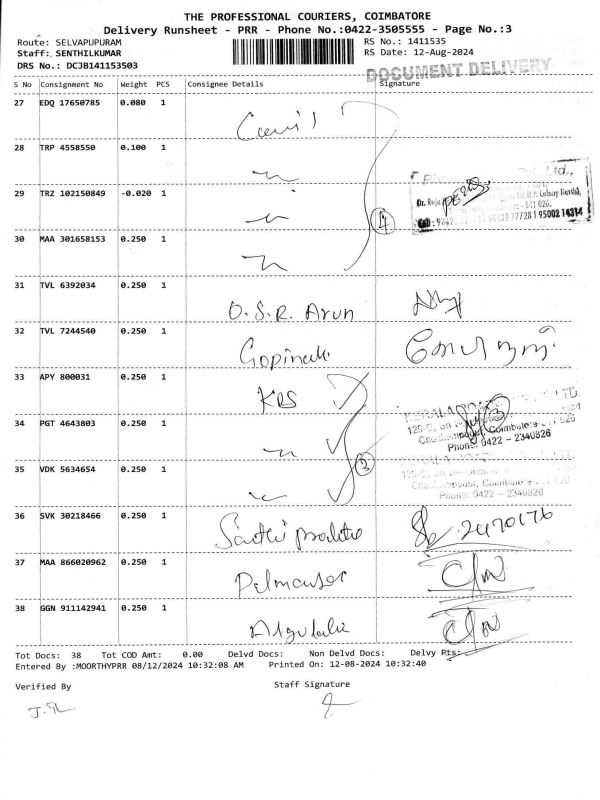 THE PROFESSIONAL COURIERS, COIMBATORE
Delivery Runsheet - PRR - Phone No.:0422-3505555 - Page No.:3
Route: SELVAPUPURAM
RS No.: 1411535
Staff: SENTHILKUMAR
RS Date: 12-Aug-2024
DRS No.: DCJB141153503
DOCUMENT DELIVERY
S No Consignment No Weight PCS Consignee Details Signature
27 EDQ 17650785 0.080 1
28 TRP 4558550 0.100 1
29 TRZ 102150849 -0.020 1
Dr. Raja
641 026.
77728 | 95002 14314
4
30 MAA 301658153 0.250 1
31 TVL 6392034 0.250 1 O.S.R. Arun
32 TVL 7244540 0.250 1 Gopinath
33 APY 800031 0.250 1 KRS
34 PGT 4643803 0.250 1
Coimbatore
Phone: 0422 - 2340826
3
35 VDK 5634654 0.250 1
Phone: 0422 - 2340826
36 SVK 30218466 0.250 1 2470176
37 MAA 866020962 0.250 1
38 GGN 911142941 0.250 1
Tot Docs: 38 Tot COD Amt: 0.00 Delvd Docs: Non Delvd Docs: Delvy Pts:
Entered By :MOORTHYPRR 08/12/2024 10:32:08 AM Printed On: 12-08-2024 10:32:40
Verified By Staff Signature